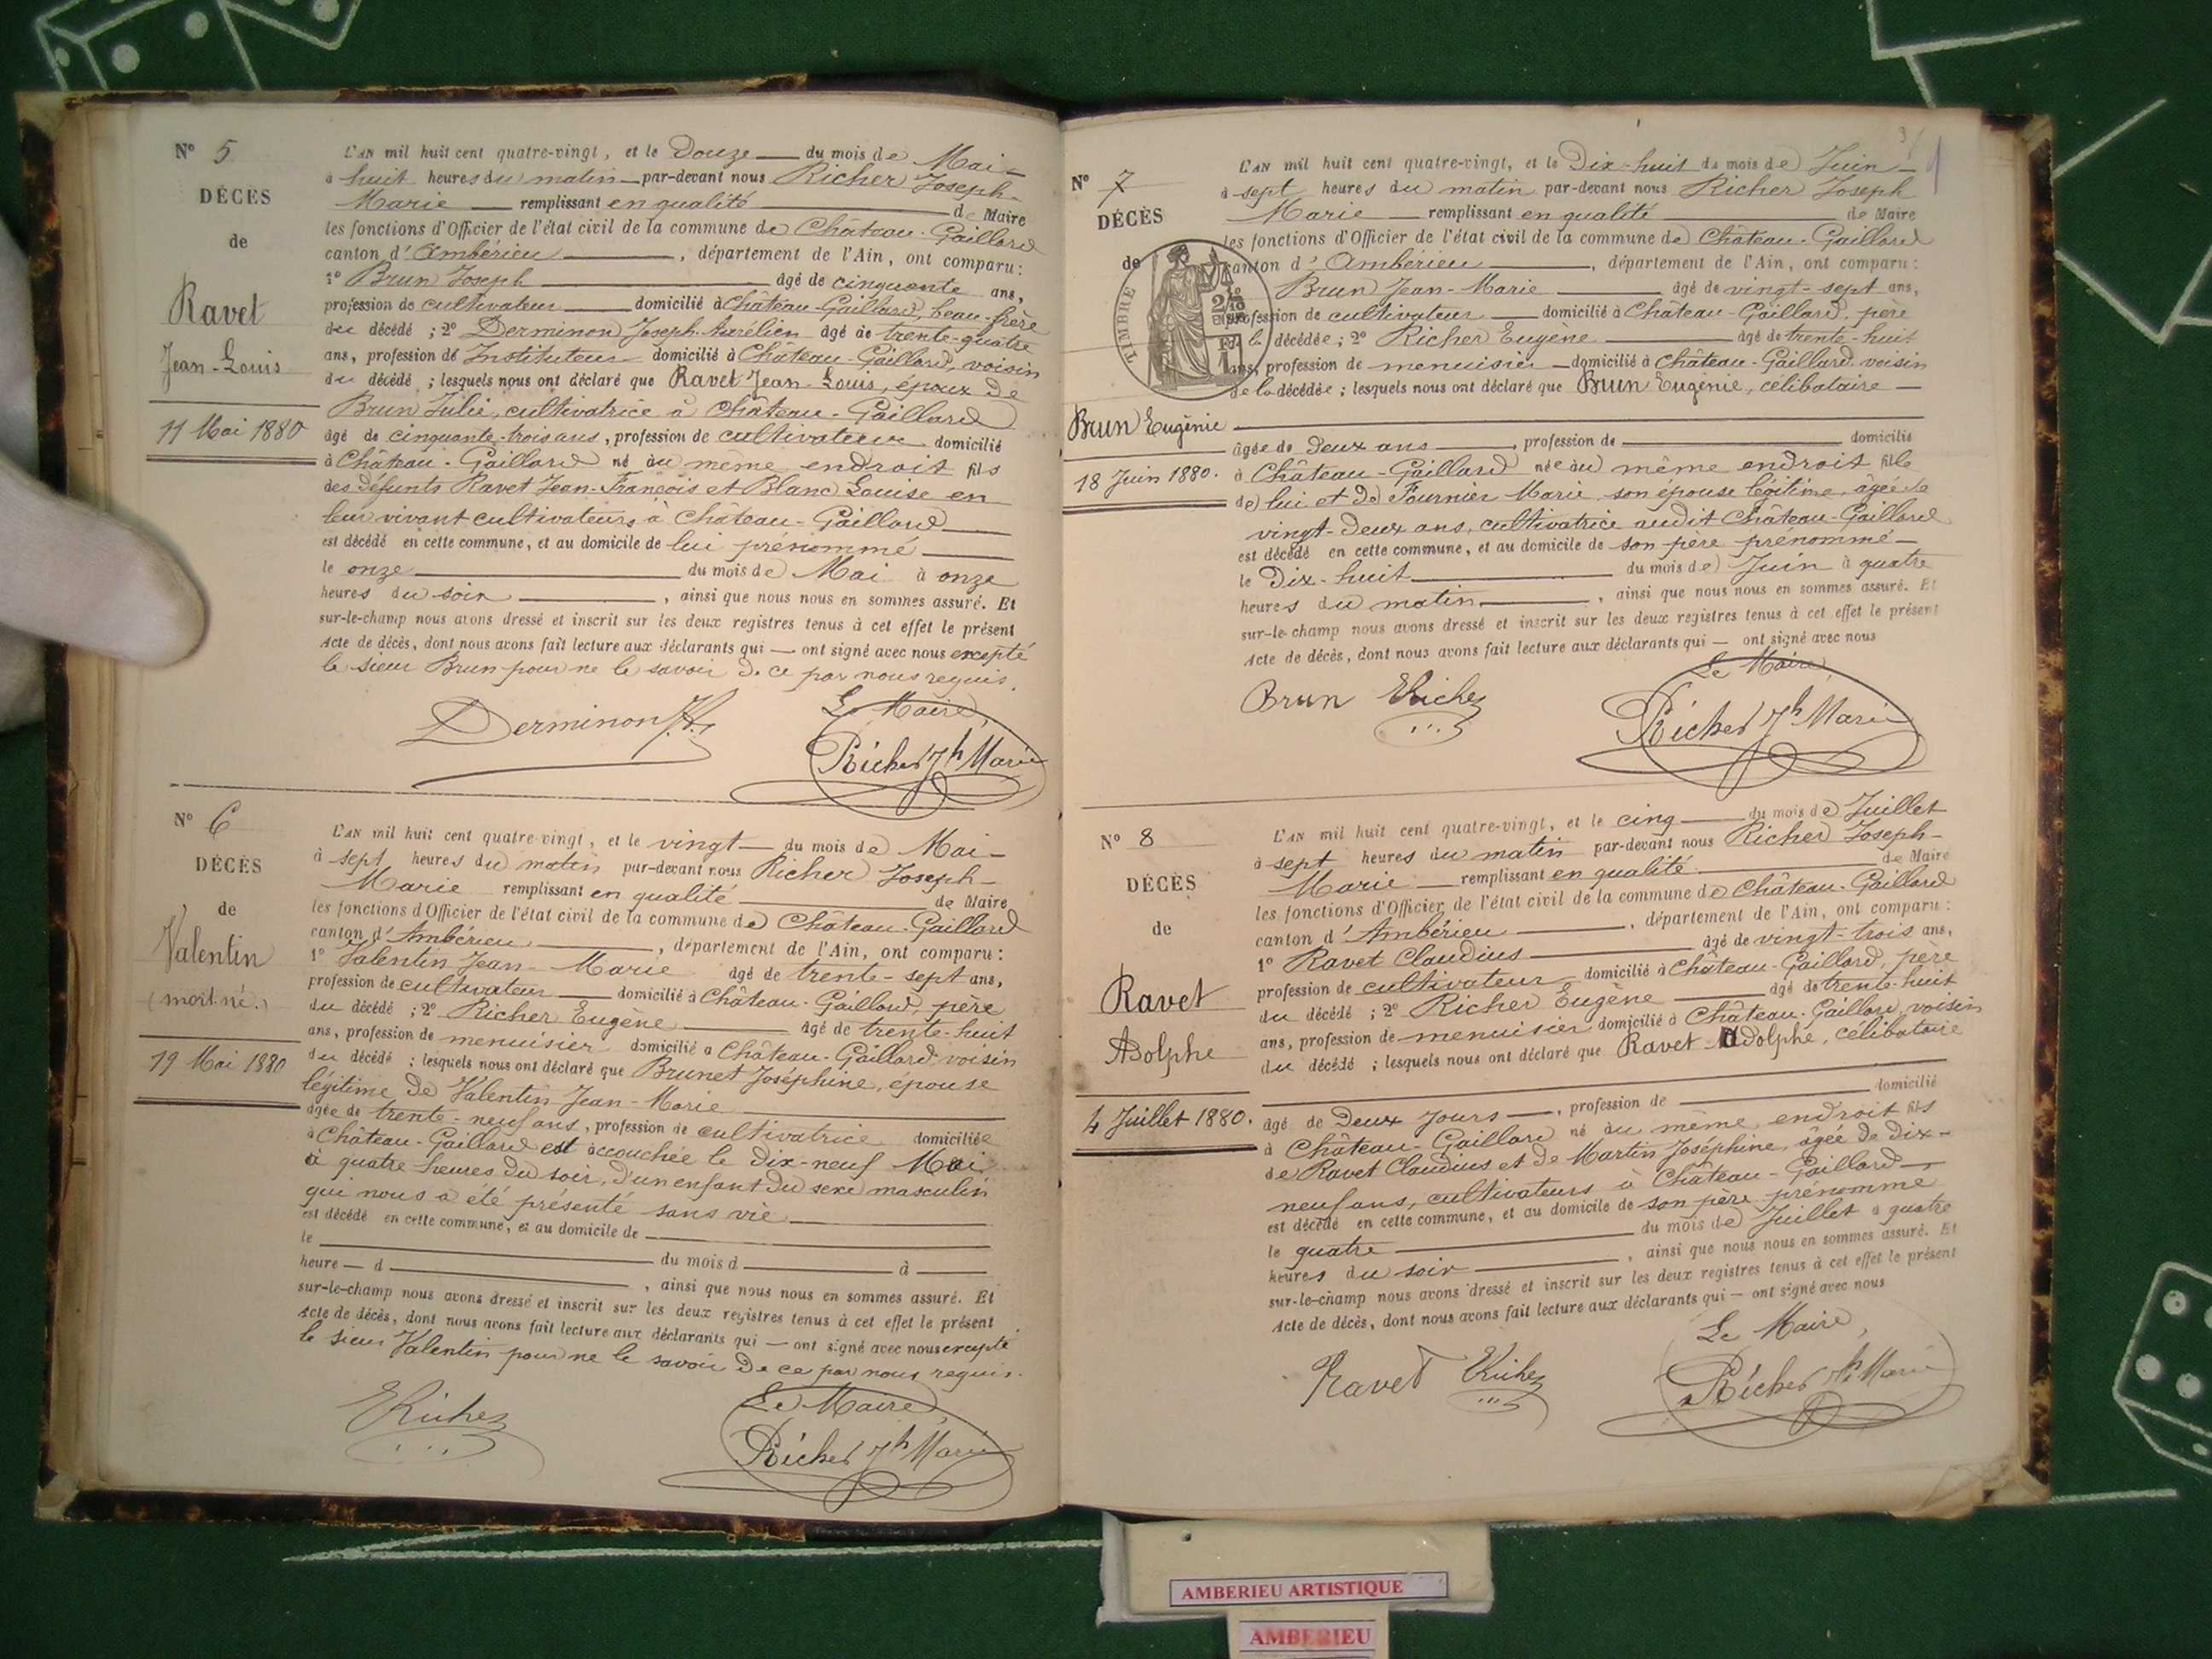 N° 5
DÉCÈS
de
Ravet
Jean-Louis
11 Mai 1880
L'AN mil huit cent quatre-vingt, et le Douze du mois de Mai
à huit heures du matin par-devant nous Richer Joseph-
Marie remplissant en qualité de Maire
les fonctions d'Officier de l'état civil de la commune de Château-Gaillard
canton d'Ambérieu, département de l'Ain, ont comparu :
1° Brun Joseph âgé de cinquante ans,
profession de cultivateur domicilié à Château-Gaillard, beau-frère
du décédé ; 2° Derminon Joseph-Aurélien âgé de trente-quatre
ans, profession de Instituteur domicilié à Château-Gaillard, voisin
du décédé ; lesquels nous ont déclaré que Ravet Jean-Louis, époux de
Brun Julie, cultivatrice à Château-Gaillard
âgé de cinquante-trois ans, profession de cultivateur domicilié
à Château-Gaillard né au même endroit fils
des défunts Ravet Jean-François et Blanc Louise en
leur vivant cultivateurs à Château-Gaillard
est décédé en cette commune, et au domicile de lui prénommé
le onze du mois de Mai à onze
heures du soir, ainsi que nous nous en sommes assuré. Et
sur-le-champ nous avons dressé et inscrit sur les deux registres tenus à cet effet le présent
Acte de décès, dont nous avons fait lecture aux déclarants qui — ont signé avec nous excepté
le sieur Brun pour ne le savoir de ce par nous requis.
Le Maire,
Derminon
Richer Jh Marie
N° 6
DÉCÈS
de
Valentin
(mort-né.)
19 Mai 1880
L'AN mil huit cent quatre-vingt, et le vingt du mois de Mai
à sept heures du matin par-devant nous Richer Joseph-
Marie remplissant en qualité de Maire
les fonctions d'Officier de l'état civil de la commune de Château-Gaillard
canton d'Ambérieu, département de l'Ain, ont comparu :
1° Valentin Jean-Marie âgé de trente-sept ans,
profession de cultivateur domicilié à Château-Gaillard, père
du décédé ; 2° Richer Eugène âgé de trente-huit
ans, profession de menuisier domicilié à Château-Gaillard, voisin
du décédé ; lesquels nous ont déclaré que Brunet Joséphine, épouse
légitime de Valentin Jean-Marie
âgée de trente-neuf ans, profession de cultivatrice domiciliée
à Château-Gaillard est accouchée le dix-neuf Mai
à quatre heures du soir, d'un enfant du sexe masculin
qui nous a été présenté sans vie
est décédé en cette commune, et au domicile de
le
heure — d du mois d à
, ainsi que nous nous en sommes assuré. Et
sur-le-champ nous avons dressé et inscrit sur les deux registres tenus à cet effet le présent
Acte de décès, dont nous avons fait lecture aux déclarants qui — ont signé avec nous excepté
le sieur Valentin pour ne le savoir de ce par nous requis.
Le Maire,
ERicher
Richer Jh Marie
N° 7
DÉCÈS
de
TIMBRE
Brun Eugénie
18 Juin 1880.
L'AN mil huit cent quatre-vingt, et le Dix-huit du mois de Juin
à sept heures du matin par-devant nous Richer Joseph
Marie remplissant en qualité de Maire
les fonctions d'Officier de l'état civil de la commune de Château-Gaillard
canton d'Ambérieu, département de l'Ain, ont comparu :
Brun Jean-Marie âgé de vingt-sept ans,
profession de cultivateur domicilié à Château-Gaillard, père
de la décédée ; 2° Richer Eugène âgé de trente-huit
ans, profession de menuisier domicilié à Château-Gaillard voisin
de la décédée ; lesquels nous ont déclaré que Brun Eugénie, célibataire
âgée de Deux ans, profession de domicilié
à Château-Gaillard née au même endroit fille
de lui et de Fournier Marie, son épouse légitime, âgée de
vingt-deux ans, cultivatrice audit Château-Gaillard
est décédé en cette commune, et au domicile de son père prénommé
le Dix-huit du mois de Juin à quatre
heures du matin, ainsi que nous nous en sommes assuré. Et
sur-le-champ nous avons dressé et inscrit sur les deux registres tenus à cet effet le présent
Acte de décès, dont nous avons fait lecture aux déclarants qui — ont signé avec nous
Le Maire,
Brun ERicher
Richer Jh Marie
N° 8
DÉCÈS
de
Ravet
Adolphe
4 Juillet 1880.
L'AN mil huit cent quatre-vingt, et le cinq du mois de Juillet
à sept heures du matin par-devant nous Richer Joseph-
Marie remplissant en qualité de Maire
les fonctions d'Officier de l'état civil de la commune de Château-Gaillard
canton d'Ambérieu, département de l'Ain, ont comparu :
1° Ravet Claudius âgé de vingt-trois ans,
profession de cultivateur domicilié à Château-Gaillard, père
du décédé ; 2° Richer Eugène âgé de trente-huit
ans, profession de menuisier domicilié à Château-Gaillard, voisin
du décédé ; lesquels nous ont déclaré que Ravet Adolphe, célibataire
âgé de Deux jours, profession de domicilié
à Château-Gaillard né au même endroit fils
de Ravet Claudius et de Martin Joséphine, âgée de dix-
neuf ans, cultivateurs à Château-Gaillard
est décédé en cette commune, et au domicile de son père prénommé
le quatre du mois de Juillet à quatre
heures du soir, ainsi que nous nous en sommes assuré. Et
sur-le-champ nous avons dressé et inscrit sur les deux registres tenus à cet effet le présent
Acte de décès, dont nous avons fait lecture aux déclarants qui — ont signé avec nous
Le Maire,
Ravet ERicher
Richer Jh Marie
AMBERIEU ARTISTIQUE
AMBERIEU